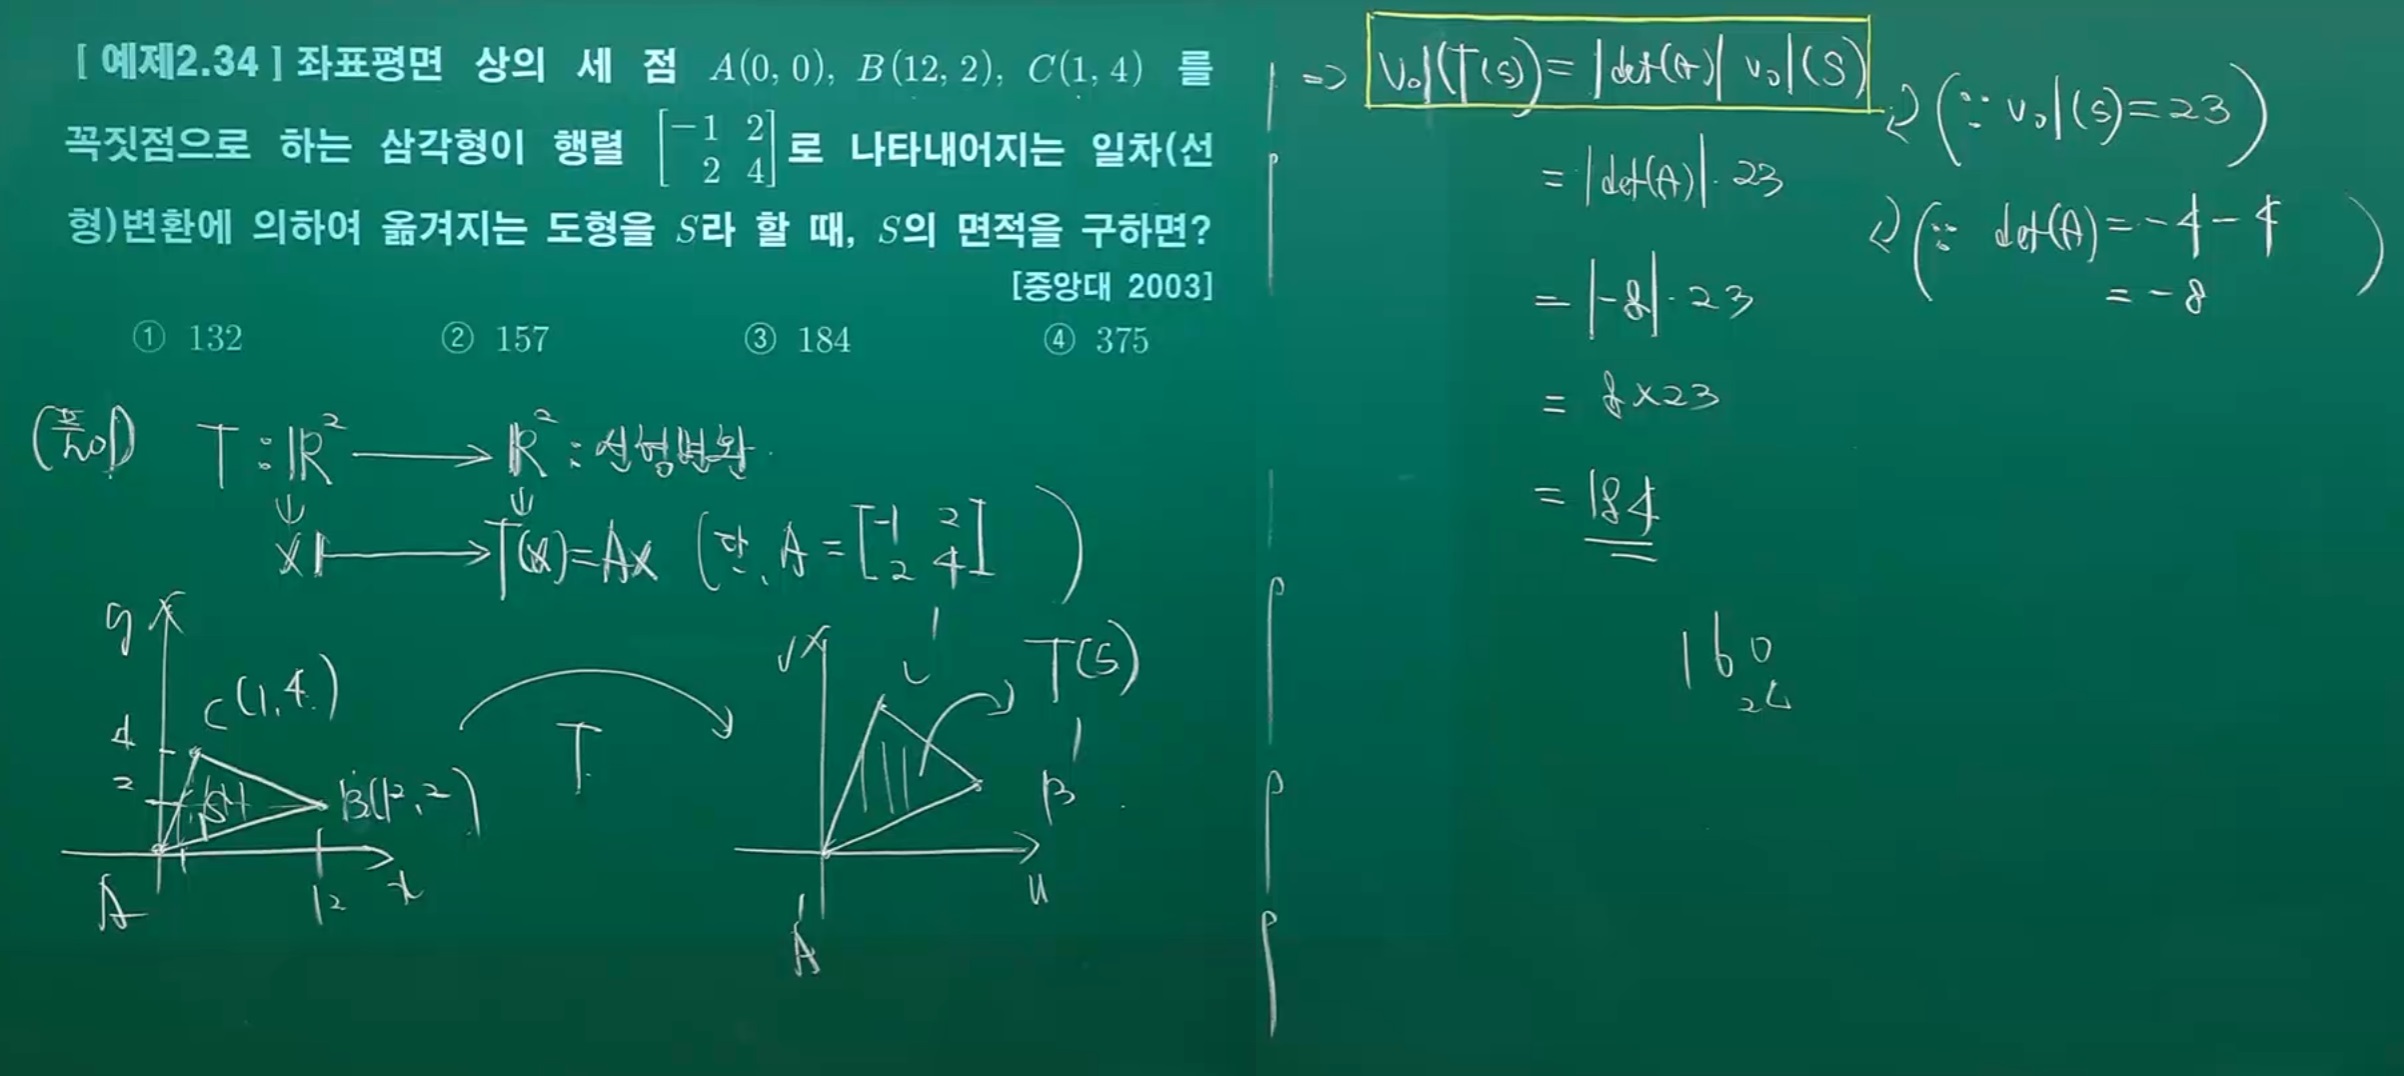 [ 예제2.34 ] 좌표평면 상의 세 점 A(0, 0), B(12, 2), C(1, 4) 를
꼭짓점으로 하는 삼각형이 행렬 [-1 2; 2 4]로 나타내어지는 일차(선
형)변환에 의하여 옮겨지는 도형을 S라 할 때, S의 면적을 구하면?
[중앙대 2003]
① 132 ② 157 ③ 184 ④ 375
(풀이) T : ℝ² ⟶ ℝ² : 선형변환
x ⟼ T(x) = Ax (단, A = [-1 2; 2 4])
y
C(1, 4)
4
2
S
B(12, 2)
A
12
x
T
v
C'
T(S)
B'
u
A'
⇒ vol(T(S)) = |det(A)| vol(S)
(∵ vol(S) = 23)
= |det(A)| · 23
(∵ det(A) = -4 - 4
= -8)
= |-8| · 23
= 8 × 23
= 184
160
24